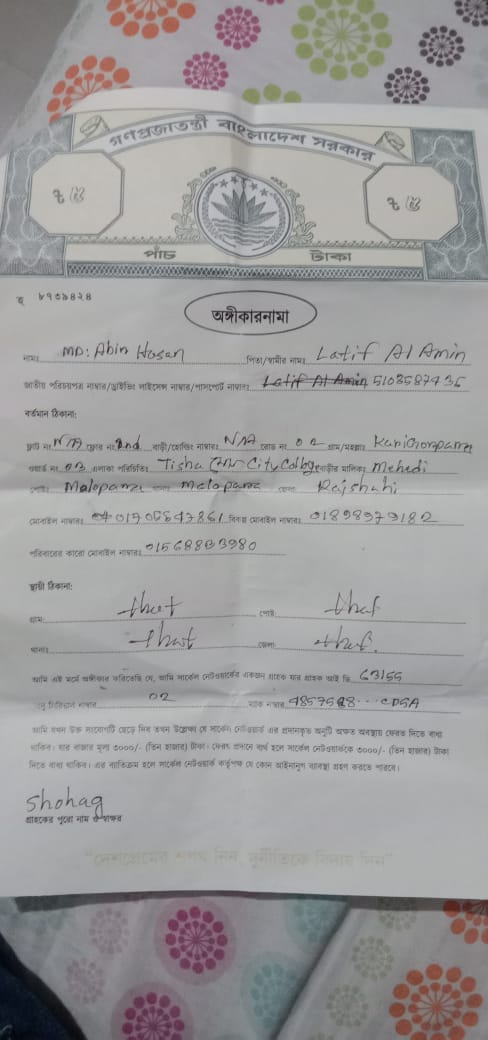 গণপ্রজাতন্ত্রী বাংলাদেশ সরকার
৳ ৫ ৳ ৫
পাঁচ টাকা
৮৭৩৯৪২৪
অঙ্গীকারনামা
নামঃ MD: Abin Hasan পিতা/স্বামীর নামঃ Latif Al Amin
জাতীয় পরিচয়পত্র নাম্বার/ড্রাইভিং লাইসেন্স নাম্বার/পাসপোর্ট নাম্বারঃ Latif Al Amin
বর্তমান ঠিকানা:
ফ্ল্যাট নং N/A ফ্লোর নং 2nd বাড়ী/হোল্ডিং নাম্বারঃ N/A রোড নং 02 গ্রাম/মহল্লাঃ
ওয়ার্ড নং 03 এলাকা পরিচিতিঃ Tisha City বাড়ীর মালিকঃ Mehedi
পোষ্টঃ Malopara থানাঃ Malopara জেলাঃ Rajshahi
মোবাইল নাম্বারঃ বিকল্প মোবাইল নাম্বারঃ 01898979182
পরিবারের কারো মোবাইল নাম্বারঃ
স্থায়ী ঠিকানা:
গ্রাম: that পোষ্ট: that
থানাঃ that জেলা: that.
আমি এই মর্মে অঙ্গীকার করিতেছি যে, আমি সার্কেল নেটওয়ার্কের একজন গ্রাহক যার গ্রাহক আই ডি
02 ম্যাক নাম্বার
আমি যখন উক্ত সংযোগটি ছেড়ে দিব তখন উল্লেক্ষ যে সার্কেল নেটওয়ার্ক এর প্রদানকৃত অনুটি অক্ষত অবস্থায় ফেরত দিতে বাধ্য
থাকিব। যার বাজার মূল্য ৩০০০/- (তিন হাজার) টাকা। ফেরৎ প্রদানে ব্যর্থ হলে সার্কেল নেটওয়ার্ককে ৩০০০/- (তিন হাজার) টাকা
দিতে বাধ্য থাকিব। এর ব্যতিক্রম হলে সার্কেল নেটওয়ার্ক কর্তৃপক্ষ যে কোন আইনানুগ ব্যবস্থা গ্রহণ করতে পারবে।
Shohag
গ্রাহকের পুরো নাম ও স্বাক্ষর
"দেশপ্রেমের শপথ নিন, দুর্নীতিকে বিদায় দিন"